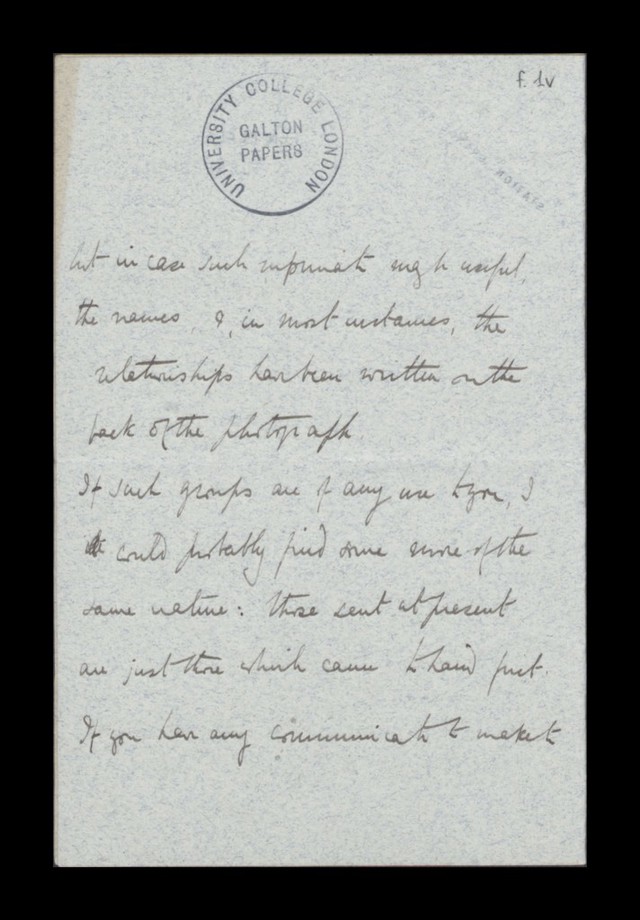 f. 1v
UNIVERSITY COLLEGE LONDON
GALTON
PAPERS
but in case such informat might useful,
the names, &, in most instances, the
relationships have been written on the
back of the photograph.
If such groups are of any use to you, I
could probably find some more of the
same nature: those sent at present
are just those which came to hand first.
If you have any communicat to make to